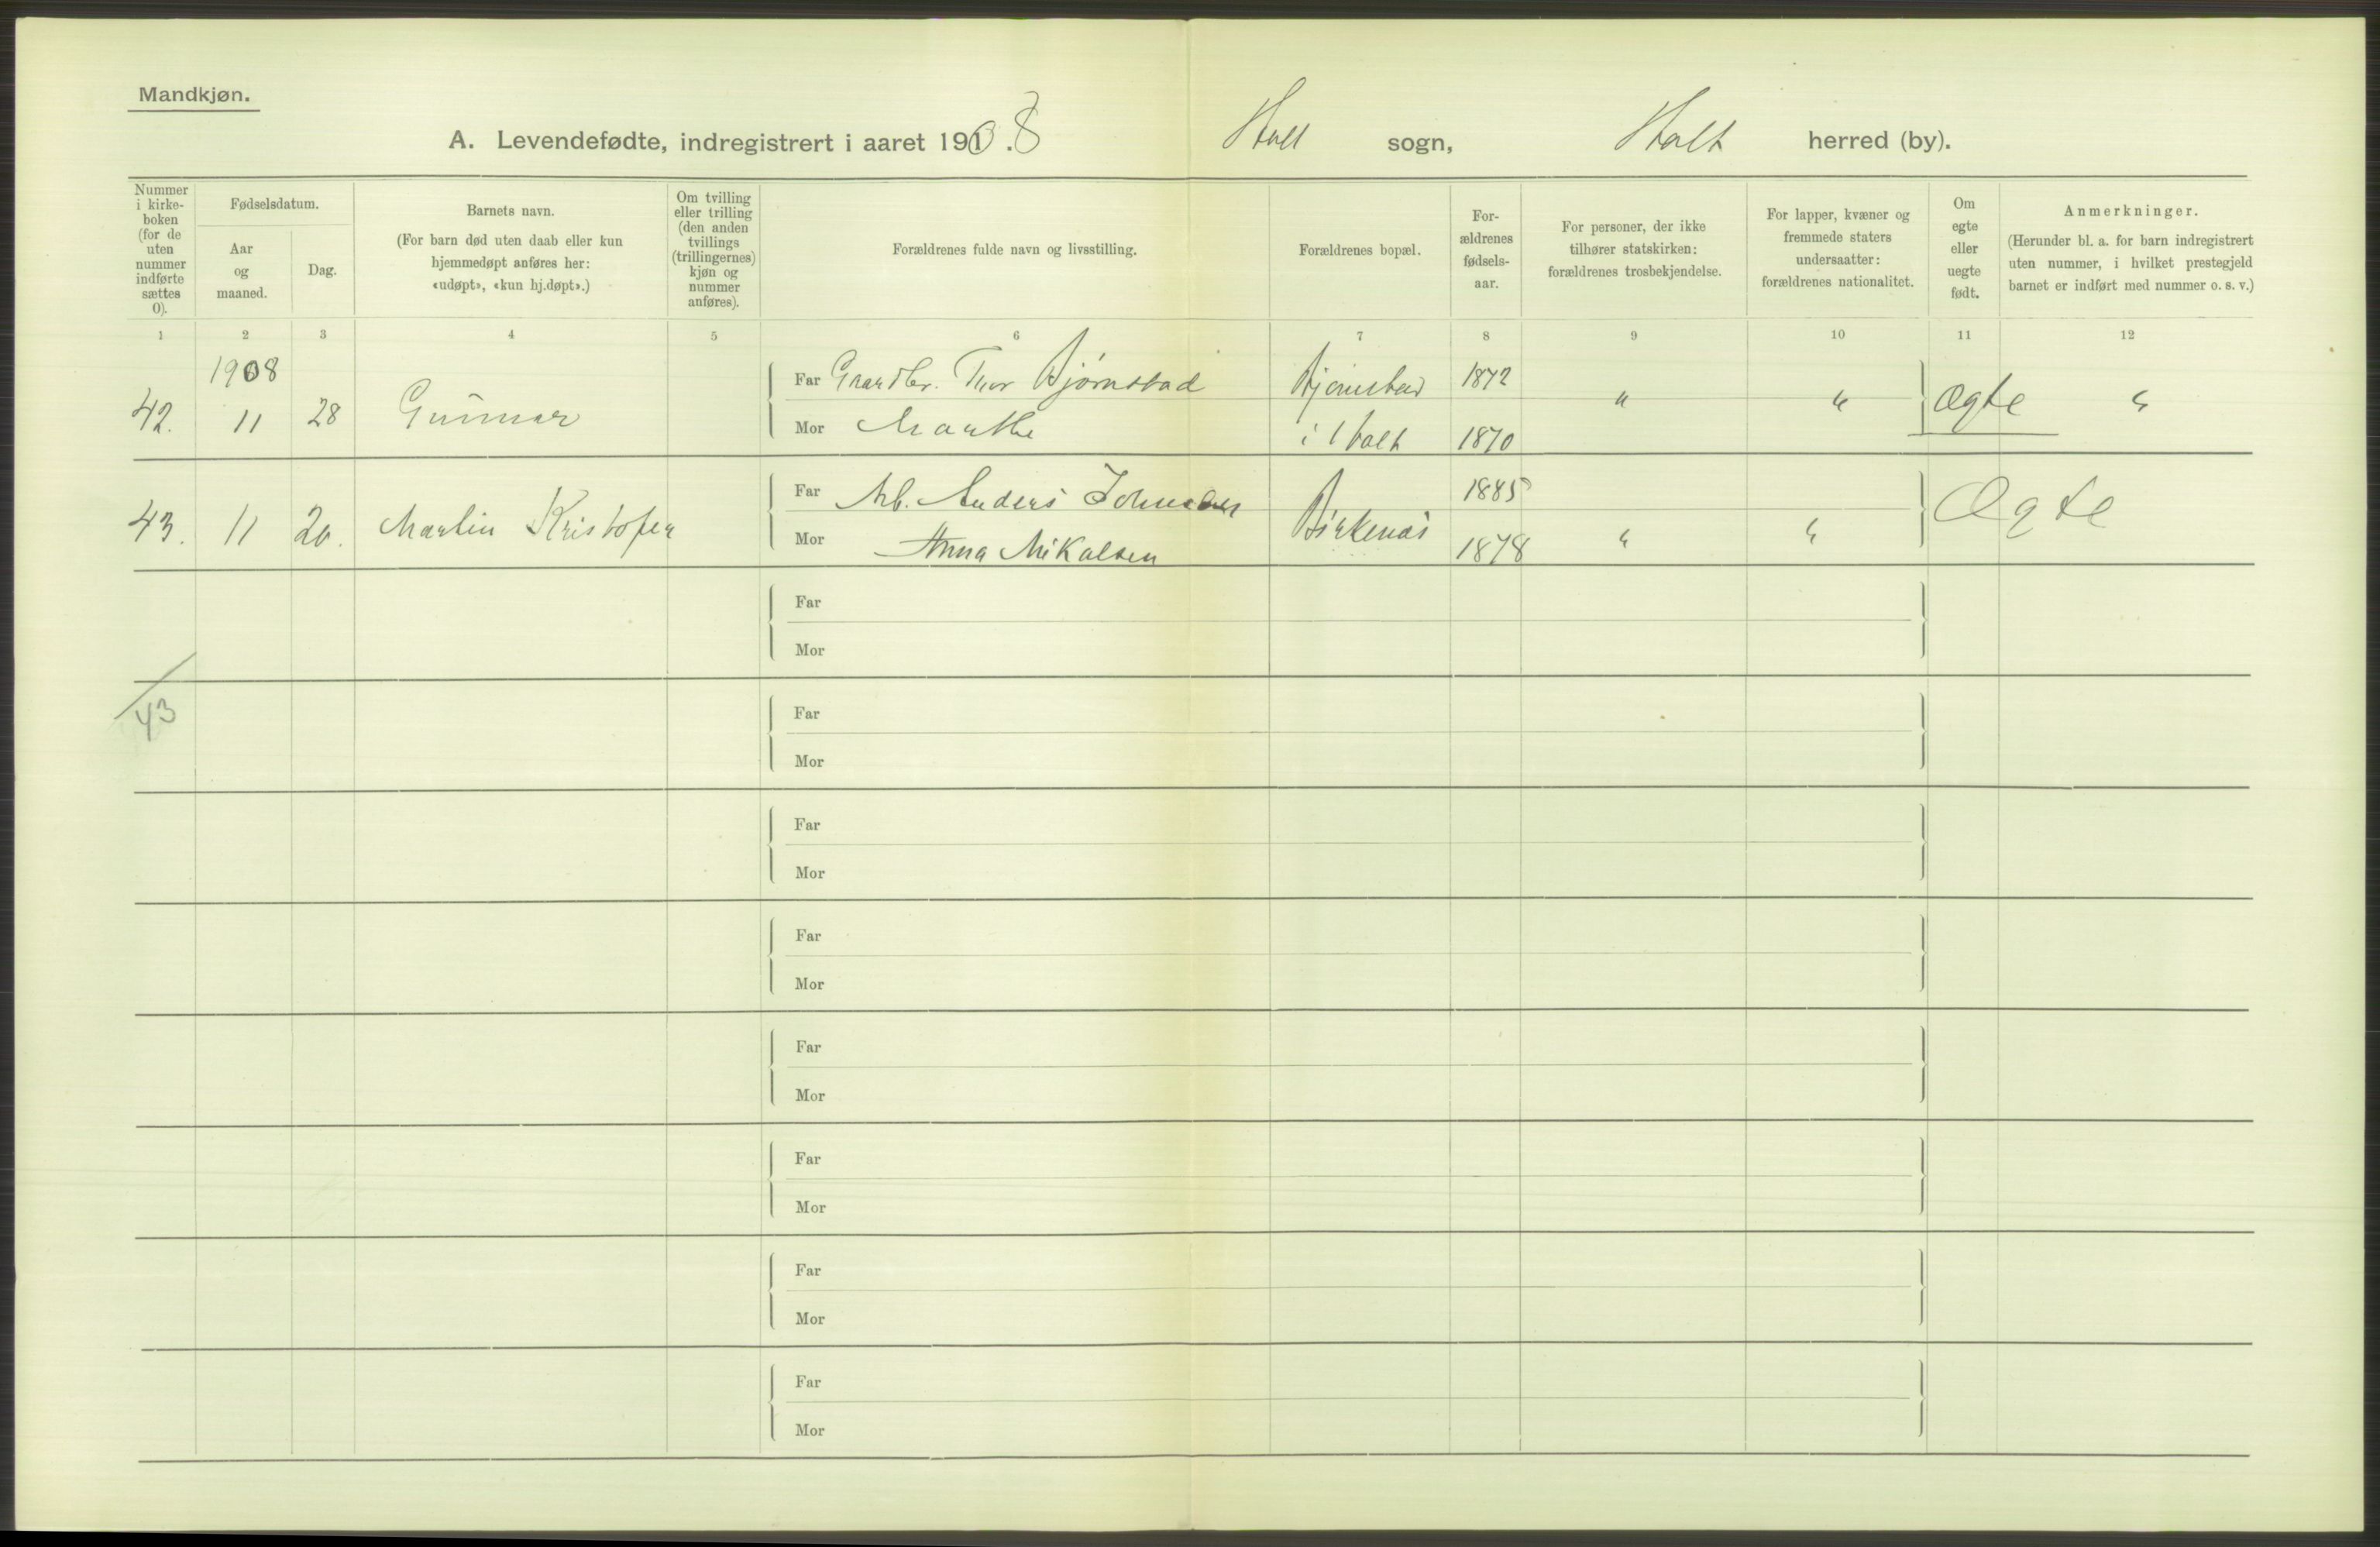 Mandkjøn.
A. Levendefødte, indregistrert i aaret 190.8 Holt sogn, Holt herred (by).
Nummer i kirke-boken (for de uten nummer indførte sættes 0).
Fødselsdatum.
Aar og maaned.
Dag.
Barnets navn.
(For barn død uten daab eller kun
hjemmedøpt anføres her:
«udøpt», «kun hj.døpt».)
Om tvilling
eller trilling
(den anden
tvillings
(trillingernes)
kjøn og
nummer
anføres).
Forældrenes fulde navn og livsstilling.
Forældrenes bopæl.
For-
ældrenes
fødsels-
aar.
For personer, der ikke
tilhører statskirken:
forældrenes trosbekjendelse.
For lapper, kvæner og
fremmede staters
undersaatter:
forældrenes nationalitet.
Om
egte
eller
uegte
født.
Anmerkninger.
(Herunder bl. a. for barn indregistrert
uten nummer, i hvilket prestegjeld
barnet er indført med nummer o. s. v.)
1 2 3 4 5 6 7 8 9 10 11 12
1908
42. 11 28 Gunnar
Far Gaardbr. Thor Bjørnstad Bjørnstad 1872 " " Ægte "
Mor Marthe i Holt 1870
43. 11 20. Martin Kristofer
Far Arb. Anders Johnsen Birkenæs 1885 Ægte
Mor Anna Mikalsen 1878 " "
Far
Mor
43
Far
Mor
Far
Mor
Far
Mor
Far
Mor
Far
Mor
Far
Mor
Far
Mor